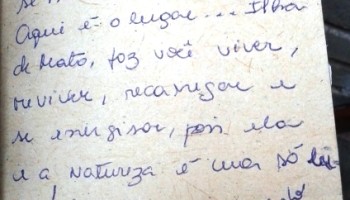 Aqui é o lugar... Ilha
de Mato, faz você viver,
reviver, recarregar e
se energisar, pois ela
e a natureza é uma só